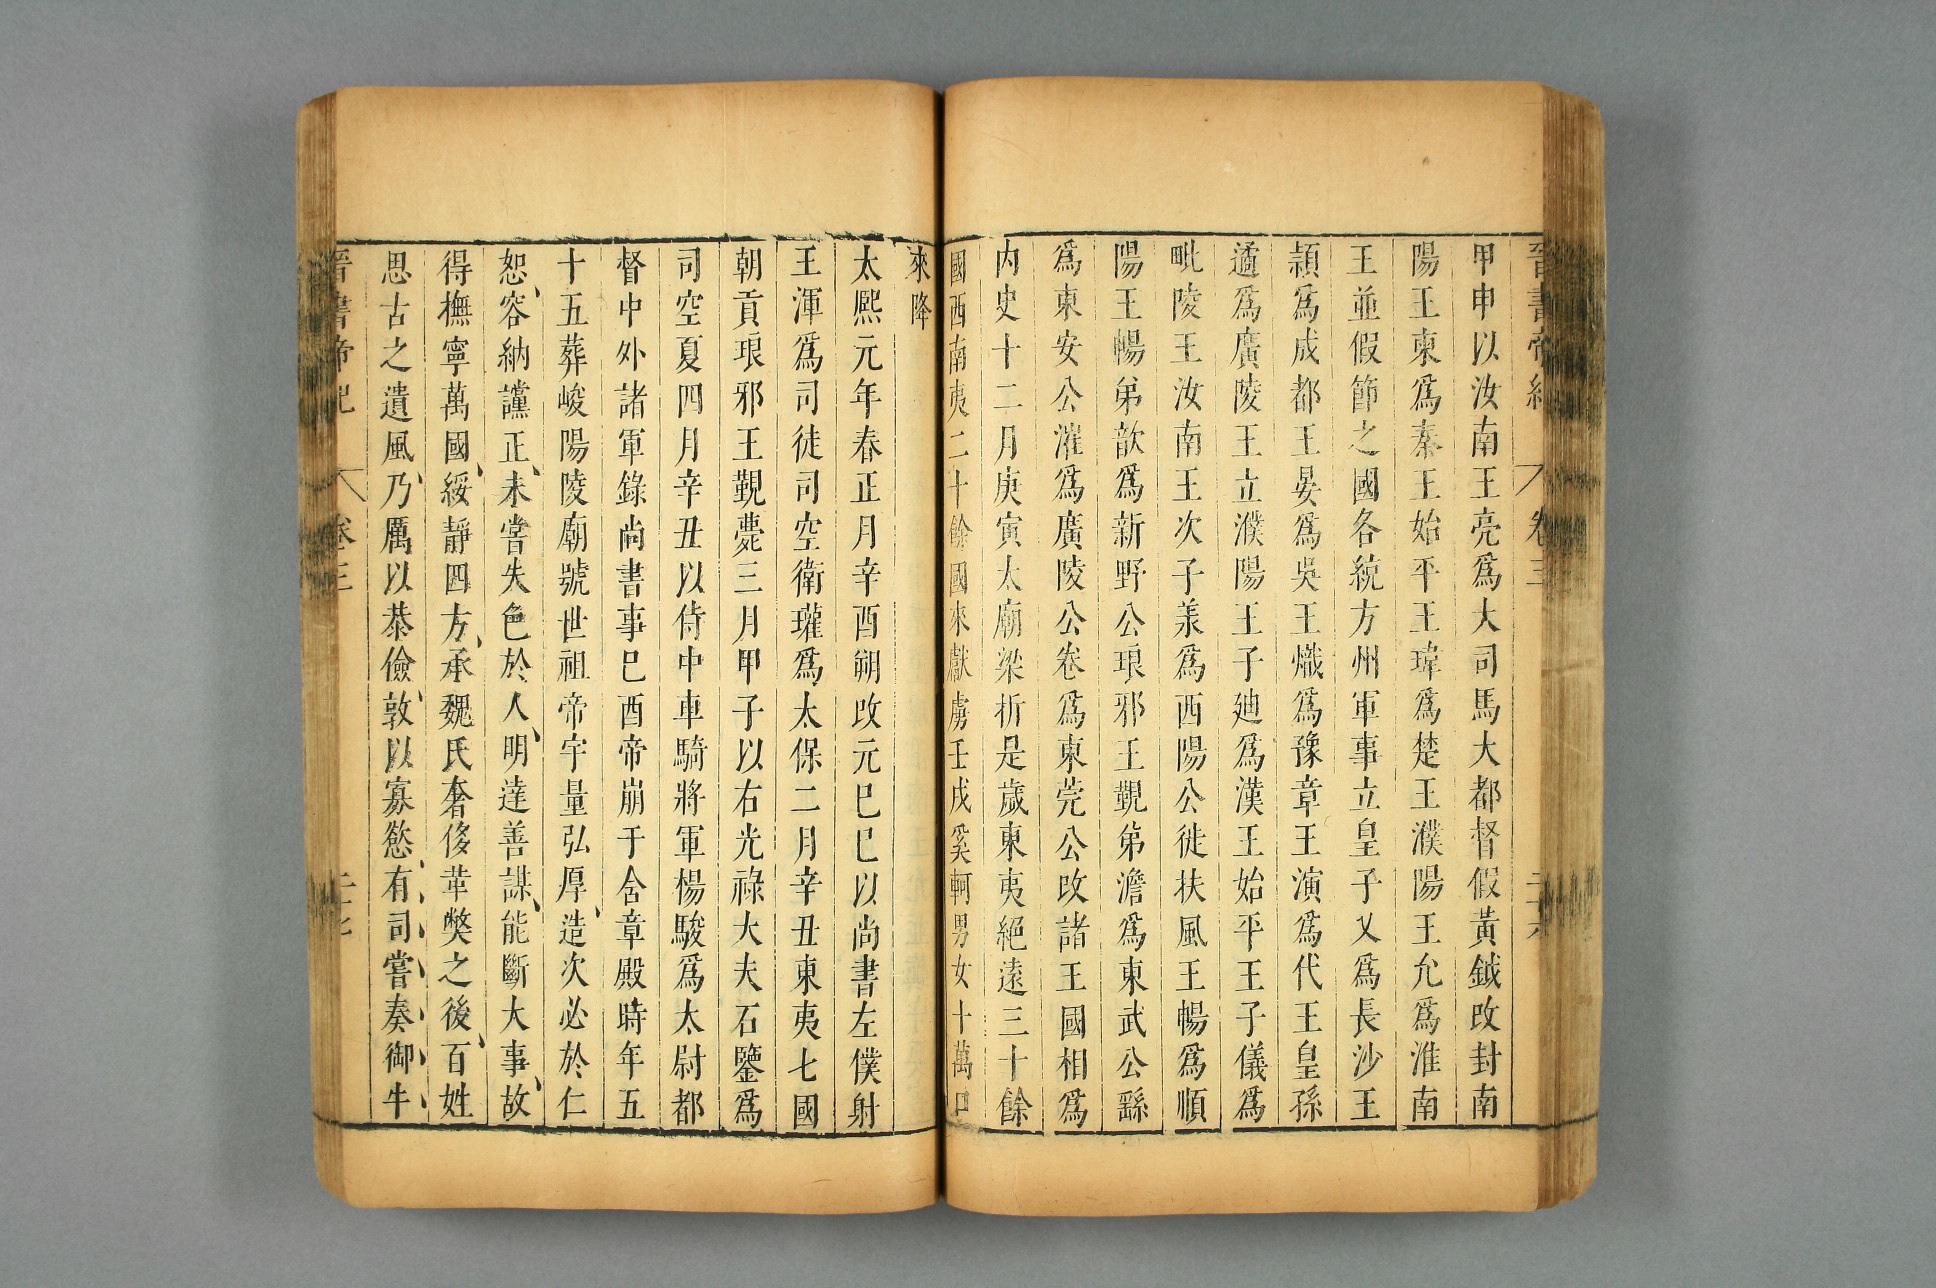 晉書帝紀 卷三
甲申以汝南王亮爲大司馬大都督假黃鉞改封南
陽王柬爲秦王始平王瑋爲楚王濮陽王允爲淮南
王並假節之國各統方州軍事立皇子乂爲長沙王
穎爲成都王晏爲吳王熾爲豫章王演爲代王皇孫
遹爲廣陵王立濮陽王子廸爲漢王始平王子儀爲
毗陵王汝南王次子羕爲西陽公徙扶風王暢爲順
陽王暢弟歆爲新野公琅邪王覲弟澹爲東武公繇
爲東安公漼爲廣陵公卷爲東莞公改諸王國相爲
內史十二月庚寅太廟梁折是歲東夷絕遠三十餘
國西南夷二十餘國來獻虜壬戌奚軻男女十萬口
來降
太熙元年春正月辛酉朔改元己巳以尚書左僕射
王渾爲司徒司空衛瓘爲太保二月辛丑東夷七國
朝貢琅邪王覲薨三月甲子以右光祿大夫石鑒爲
司空夏四月辛丑以侍中車騎將軍楊駿爲太尉都
督中外諸軍錄尚書事己酉帝崩于含章殿時年五
十五葬峻陽陵廟號世祖帝宇量弘厚造次必於仁
恕容納讜正未嘗失色於人明達善謀能斷大事故
得撫寧萬國綏靜四方承魏氏奢侈革弊之後百姓
思古之遺風乃厲以恭儉敦以寡慾有司嘗奏御牛
晉書帝紀 卷三 二十七